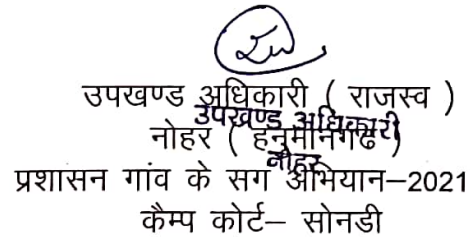 उपखण्ड अधिकारी ( राजस्व )
उपखण्ड अधिकारी
नोहर ( हनुमानगढ )
नोहर
प्रशासन गांव के सग अभियान–2021
कैम्प कोर्ट– सोनडी